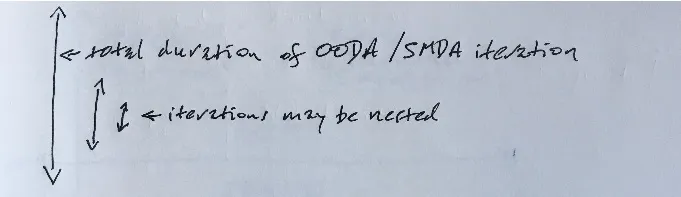 ← total duration of OODA / SMDA iteration
← iterations may be nested